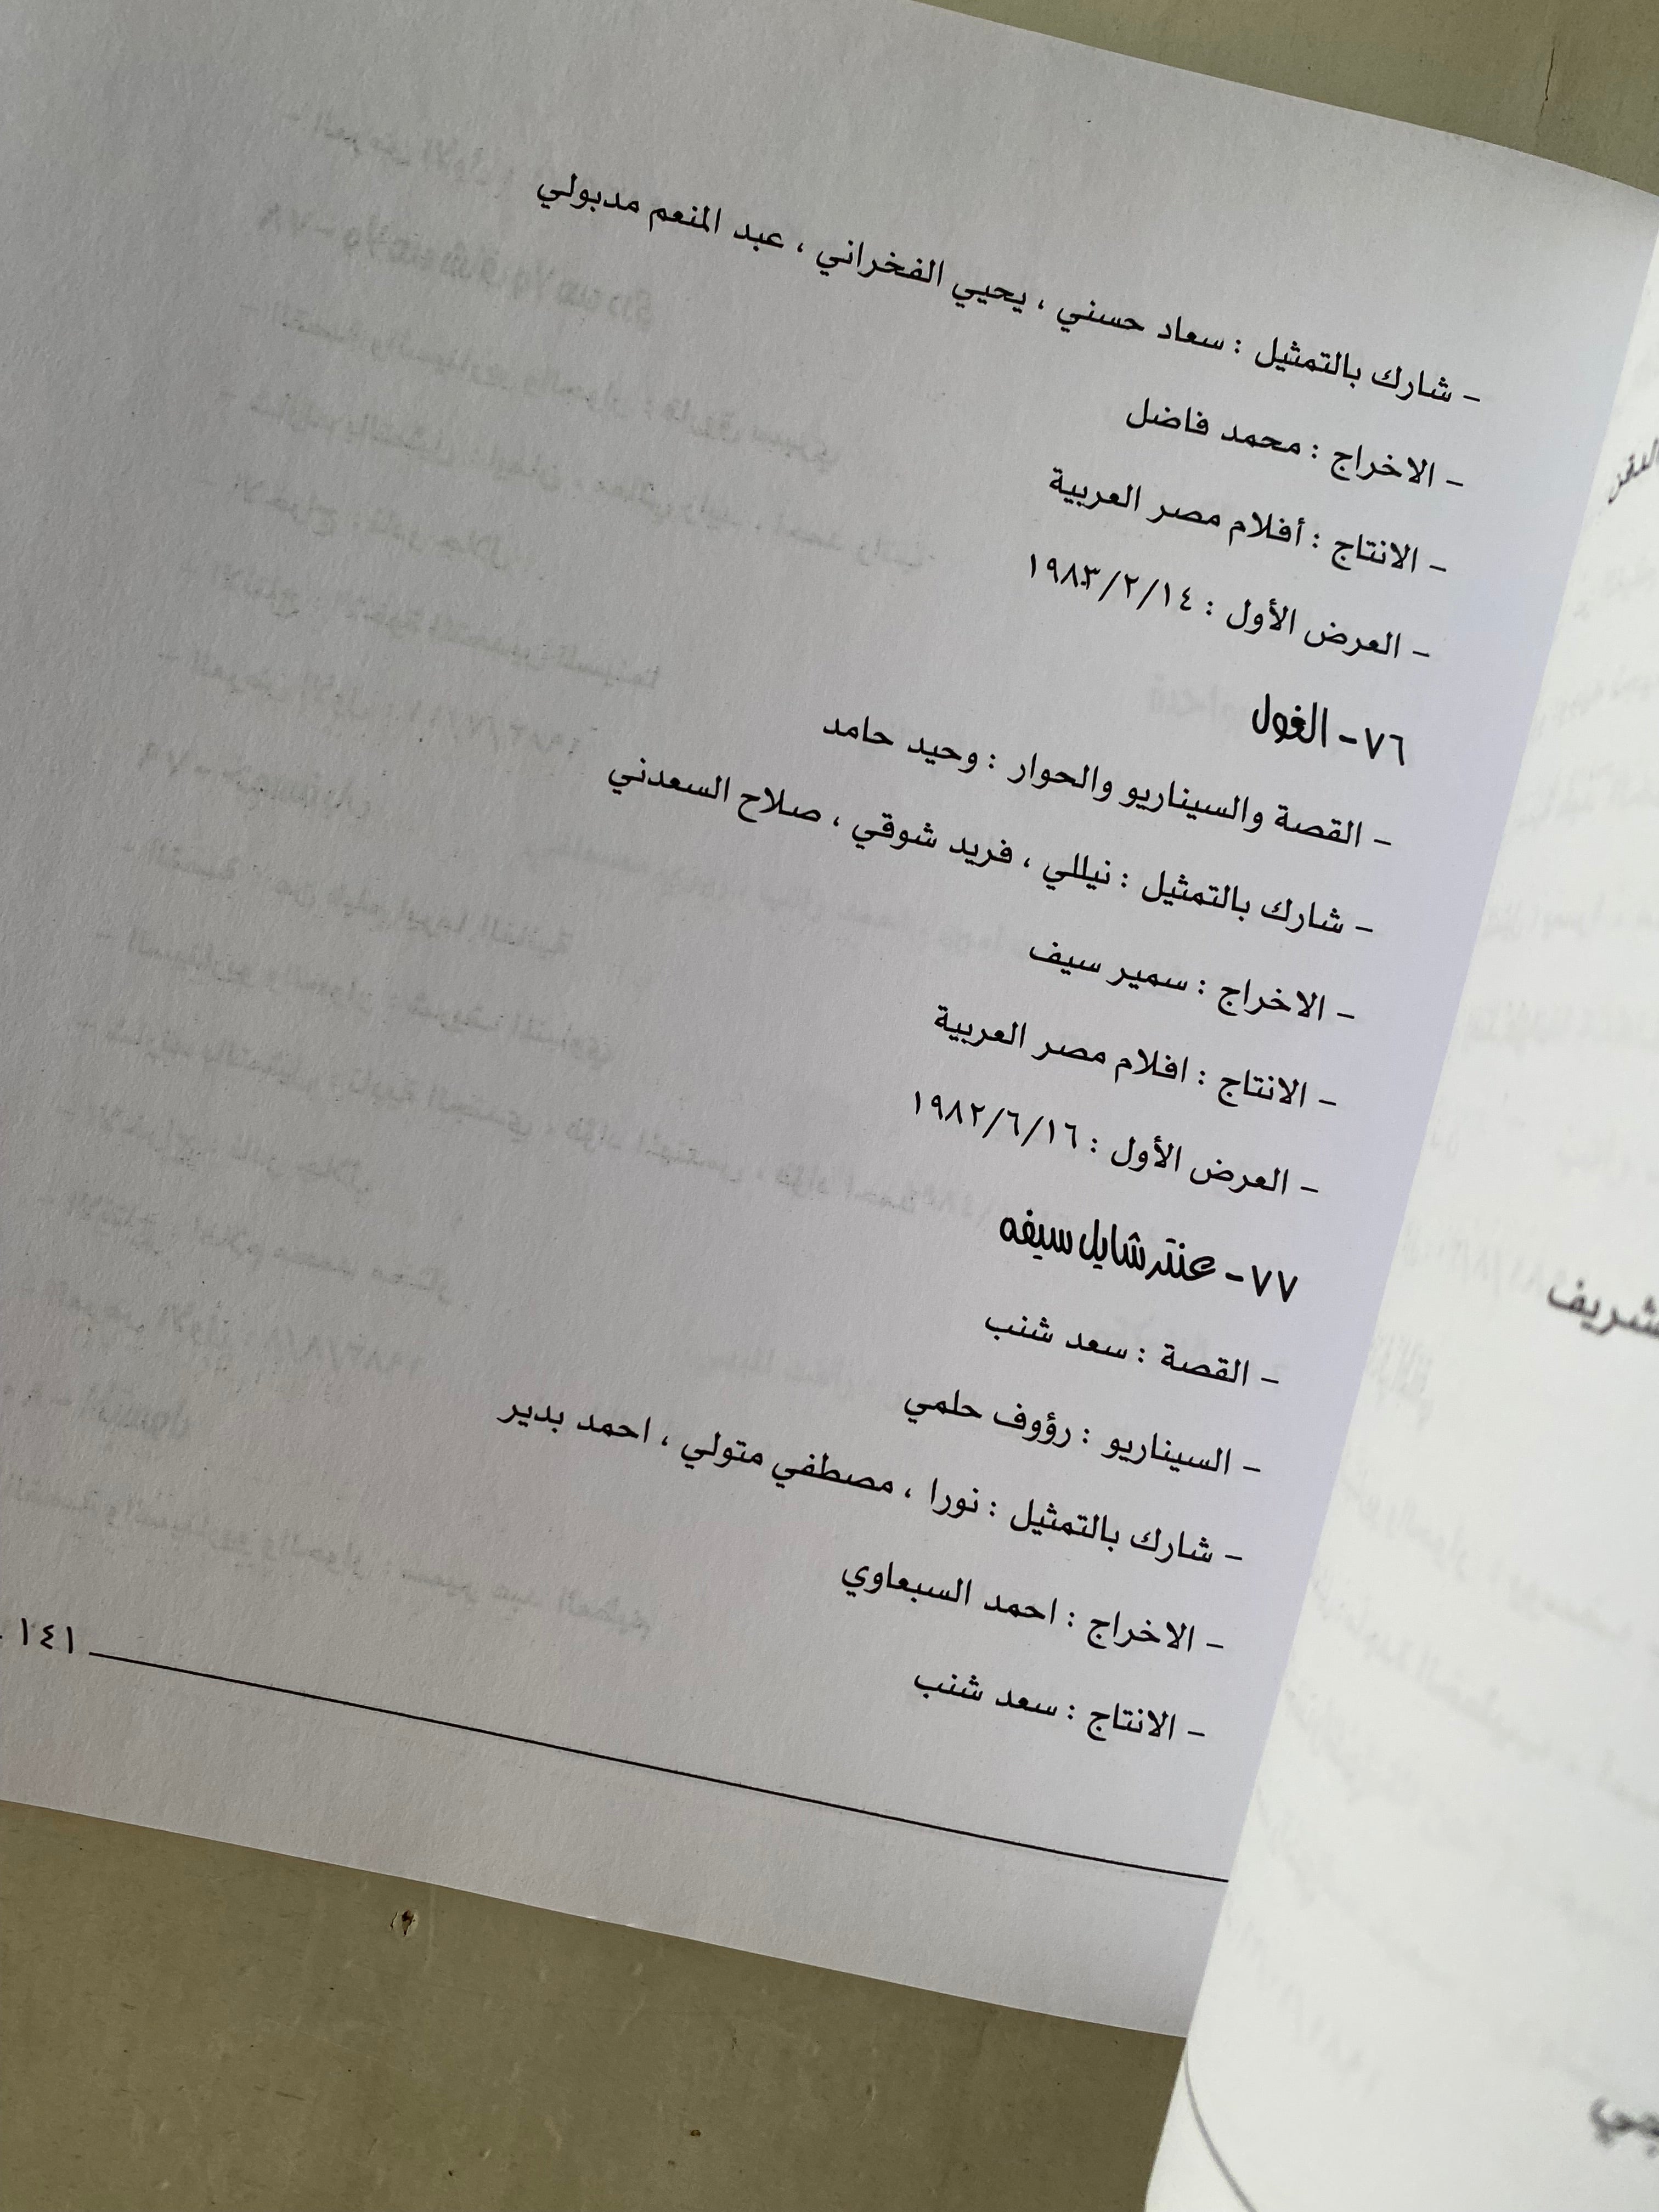 - شارك بالتمثيل : سعاد حسني ، يحيي الفخراني ، عبد المنعم مدبولي
- الاخراج : محمد فاضل
- الانتاج : أفلام مصر العربية
- العرض الأول : ١٩٨٣/٢/١٤
٧٦ - الغول
- القصة والسيناريو والحوار : وحيد حامد
- شارك بالتمثيل : نيللي ، فريد شوقي ، صلاح السعدني
- الاخراج : سمير سيف
- الانتاج : افلام مصر العربية
- العرض الأول : ١٩٨٢/٦/١٦
٧٧ - عنتر شايل سيفه
- القصة : سعد شنب
- السيناريو : رؤوف حلمي
- شارك بالتمثيل : نورا ، مصطفي متولي ، احمد بدير
- الاخراج : احمد السبعاوي
- الانتاج : سعد شنب
١٤١